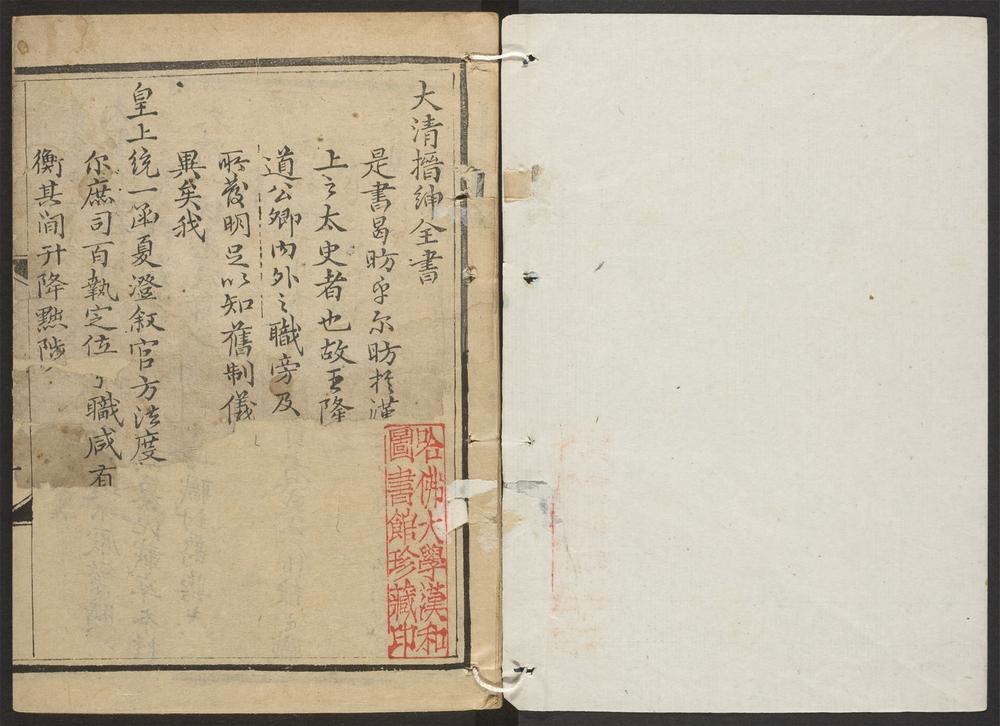 大清搢紳全書
是書曷昉乎尔昉於漢
上之太史者也故王降
道公卿內外之職旁及
所發明足以知舊制儀
異矣我
皇上統一函夏澄叙官方法度
尔庶司百執定位職咸有
衡其间升降黜陟
哈佛大學漢和
圖書館珍藏印